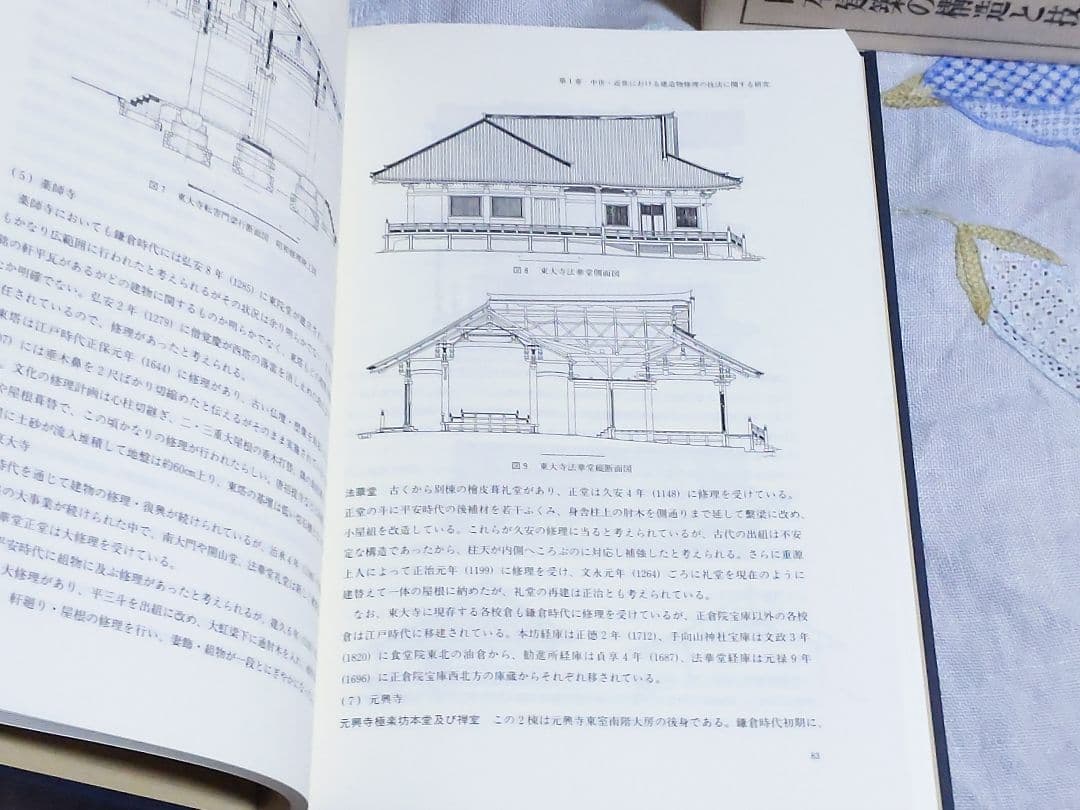 図7 東大寺転害門梁行断面図
(5) 薬師寺
薬師寺においても鎌倉時代には弘安8年(1285)に東院堂が建立
もかなり広範囲に行われたと考えられるがその状況は余り明らかでない。
銘の軒平瓦があるがどの建物に関するものか明らかでなく、
たか明確でない。弘安2年(1279)に僧覚慶が西塔の落雷を消し止め
任されているので、修理があったと考えられる。
東塔は江戸時代正保元年(1644)に修理があり、古い仏壇・
07)には垂木鼻を2尺ばかり切縮めたと伝えるがそのまま実施
。文化の修理計画は心柱切継ぎ、二・三重大屋根の垂木打替、
や屋根葺替で、この頃かなりの修理が行われたらしい。
に土砂が流入堆積して地盤は約60cm上り、東塔の基壇は
東大寺
時代を通じて建物の修理・復興が続けられているが、治承4年
の大事業が続けられた中で、南大門や開山堂、法華堂礼堂は
華堂正堂は大修理を受けている。
平安時代に組物に及ぶ修理があったと考えられるが、
大修理があり、平三斗を出組に改め、大虹梁下に通肘木を入れ、
軒廻り・屋根の修理を行い、妻飾・組物が一段とにぎやかになった
第1章 中世・近世における建造物修理の技法に関する研究
図8 東大寺法華堂側面図
図9 東大寺法華堂縦断面図
法華堂 古くから別棟の檜皮葺礼堂があり、正堂は久安4年(1148)に修理を受けている。
正堂の斗に平安時代の後補材を若干ふくみ、身舎柱上の肘木を側通りまで延して繋梁に改め、
小屋組を改造している。これらが久安の修理に当ると考えられているが、古代の出組は不安
定な構造であったから、柱天が内側へころぶのに対応し補強したと考えられる。さらに重源
上人によって正治元年(1199)に修理を受け、文永元年(1264)ごろに礼堂を現在のように
建替えて一体の屋根に納めたが、礼堂の再建は正治とも考えられている。
なお、東大寺に現存する各校倉も鎌倉時代に修理を受けているが、正倉院宝庫以外の各校
倉は江戸時代に移建されている。本坊経庫は正徳2年(1712)、手向山神社宝庫は文政3年
(1820)に食堂院東北の油倉から、勧進所経庫は貞享4年(1687)、法華堂経庫は元禄9年
(1696)に正倉院宝庫西北方の庫蔵からそれぞれ移されている。
(7) 元興寺
元興寺極楽坊本堂及び禅室 この2棟は元興寺東室南階大房の後身である。鎌倉時代初期に、
83
築の構造と技